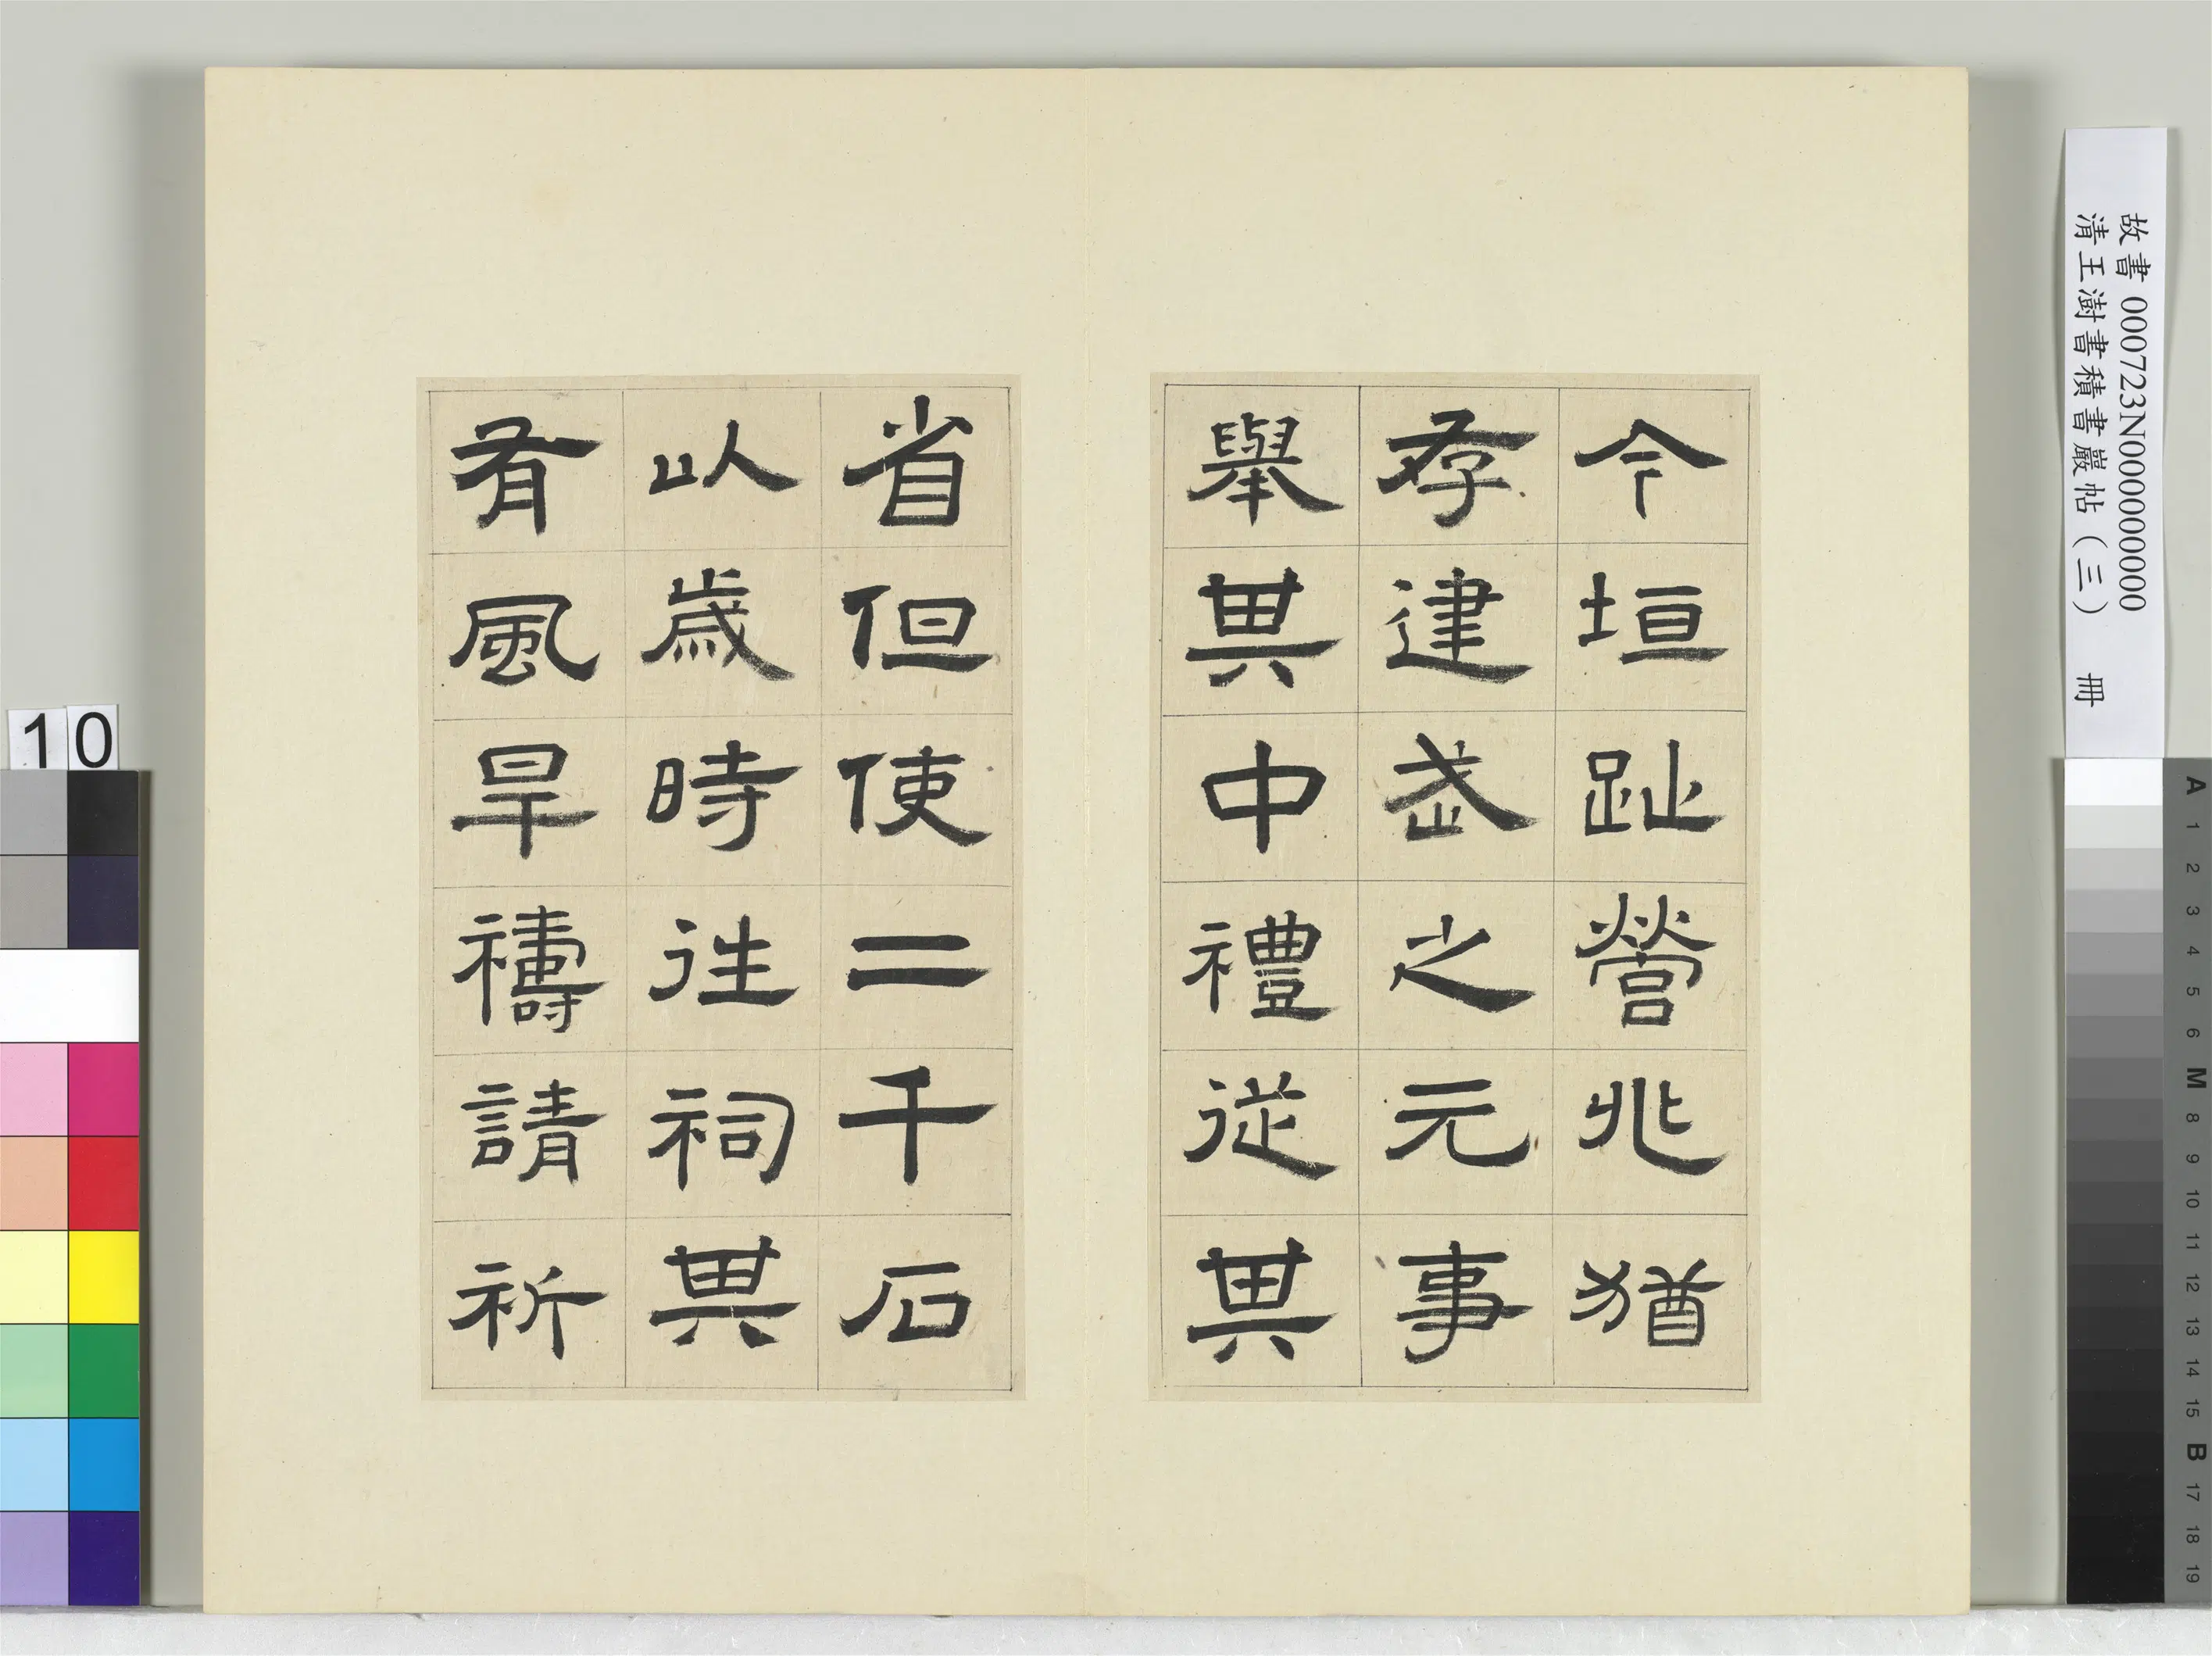 今垣趾營兆猶
存建武之元事
舉其中禮從其
省但使二千石
以歲時往祠其
有風旱禱請祈
故書 000723N000000000
清王澍書積書巖帖（三） 冊
10
A 1 2 3 4 5 6 M 8 9 10 11 12 13 14 15 B 17 18 19